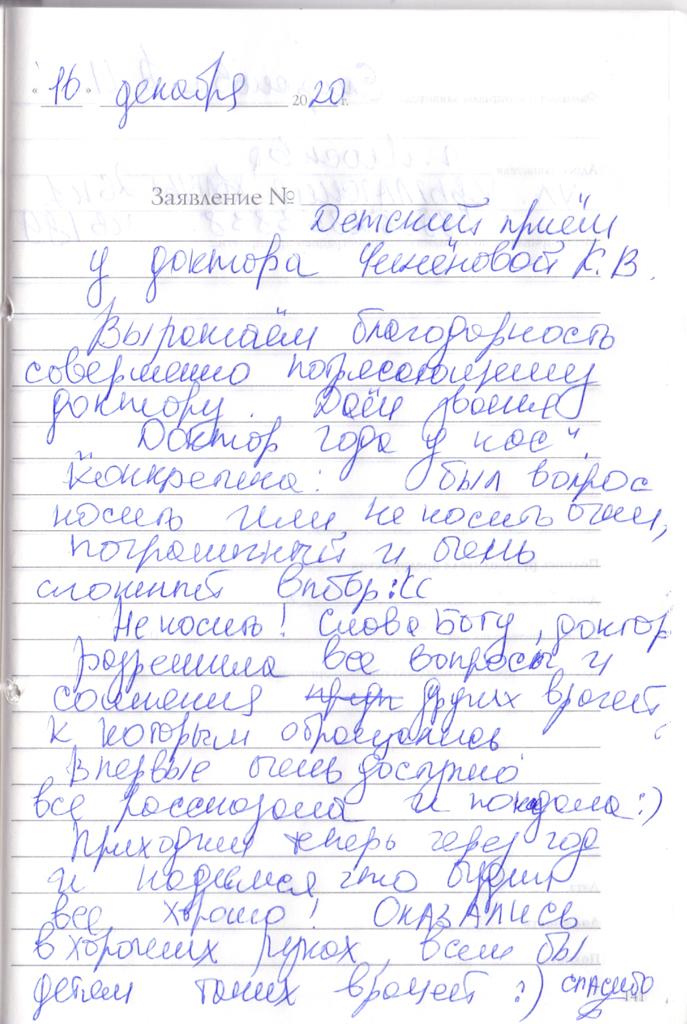 « 16 » декабря 2020 г.
Заявление №
Детский приём
у доктора К. В.
Выражаем благодарность
совершенно потрясающему
доктору. Даём звания
"Доктор года у нас".
Конкретика: был вопрос
носить или не носить очки,
пограничный и очень
сложный выбор:
Не носить! Слова Богу, доктор
разрешила все вопросы и
сомнения других врачей,
к которым обращались
Впервые очень доступно
все рассказала и показала:)
Приходим теперь через год
и надеемся что будит
все хорошо! ОКАЗАЛИСЬ
в хороших руках, всем бы
детям таких врачей :) СПАСИБО